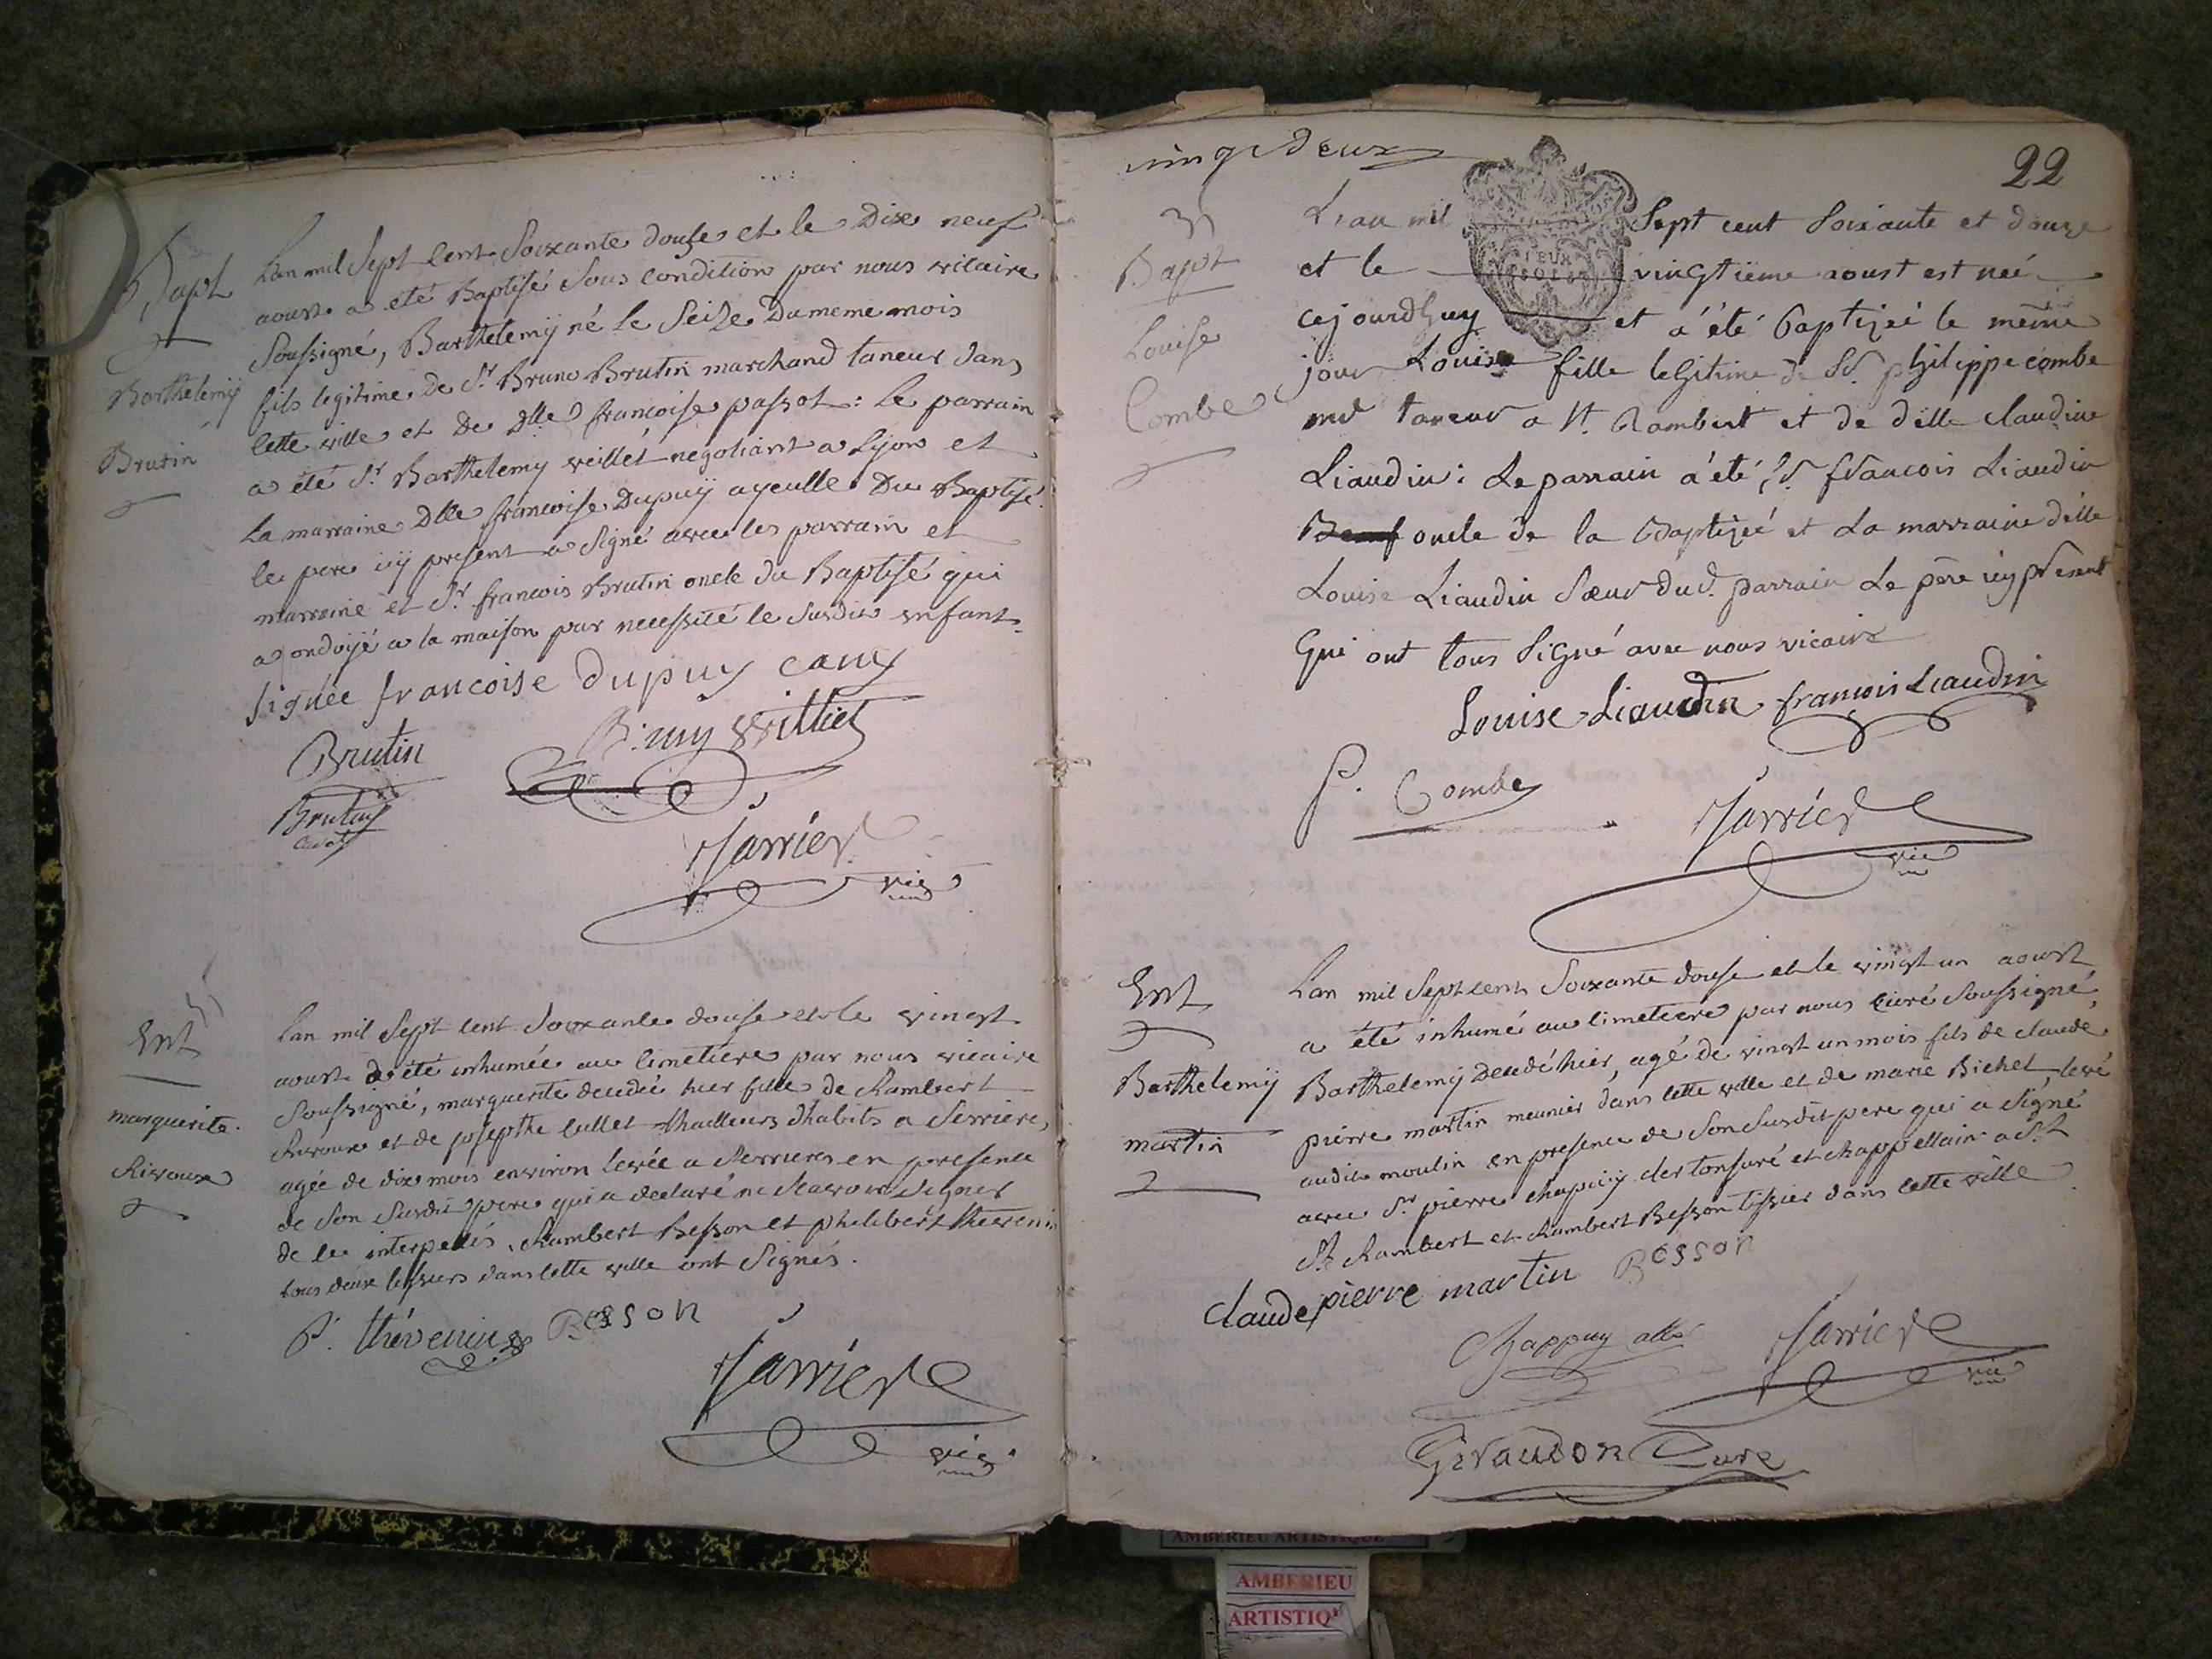 Bapt
Barthelemÿ
Brutin
Lan mil Sept cent Soixante douse et le Dix neuf
aoust a eté Baptisé Sous condition par nous vicaire
Soussigné, Barthelemÿ né le Seize du meme mois
fils legitime de Sr Bruno Brutin marchand taneur dans
cette ville et de Dlle françoise passot : le parrain
a eté Sr Barthelemy veillet negotiant a Lyon et
la marraine Dlle francoise Dupuÿ ayeulle du Baptisé.
le pere icÿ present a Signé avec les parrain et
marraine et Sr francois Brutin oncle du Baptisé qui
a ondoÿé a la maison par necessité le Susdit enfant.
signée francoise dupuy
Brutin
Williet
Brutin
Jarrier
vic
Ent
marguerite.
Rivoux
Lan mil Sept cent Soixante douse et le vingt
aoust a été inhumée au cimetiere par nous vicaire
Soussigné, marguerite decedée hier fille de Rambert
Rivoux et de josepthe cullet thailleurs d'habits a Serriere,
agée de dix mois environ levée a Serrieres en presence
de Son Susdit pere qui a declaré ne Scavoir Signer
de ce interpellés, Rambert Besson et philibert thevenin
tous deux tissiers dans cette ville ont Signés.
P. thévenin Besson
Jarrier
vic
vingt deux
22
Bapt
Louise
Combe
L'an mil Sept cent Soixante et douze
et le vingtiéme aoust est neé
cejourdhuy et a été baptizeé le même
jour Louise fille legitime de Sr. philippe combe
md taneur a St. Rambert et de dlle claudine
Liaudin : Le parrain a été Sr. francois Liaudin
oncle de la Baptizeé et La marraine dlle
Louise Liaudin Sœur dud. parrain Le père icy présent
Qui ont tous Signé avec nous vicaire
Louise Liaudin francois Liaudin
P. Combe
Jarrier
vic
Ent
Barthelemÿ
martin
Lan mil Sept cent Soixante douse et le vingt un aoust
a été inhumé au cimetiere par nous curé Soussigné,
Barthelemÿ decedé hier, agé de vingt un mois fils de claude
pierre martin meunier dans cette ville et de marie Bichet, levé
audit moulin en presence de Son Susdit pere qui a Signé
avec Sr pierre chapuÿ cler tonsuré et chappellain a St
St Rambert et Rambert Besson tissier dans cette ville
claude pierre martin Besson
Chappuy
Jarrier
vic
Giraudon Curé
AMBERIEU ARTISTIQUE
AMBERIEU
ARTISTIQ